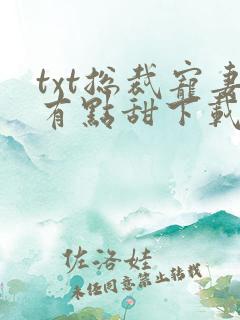 txt总裁宠妻
有點甜下載
佐洛娃
未经同意禁止转载